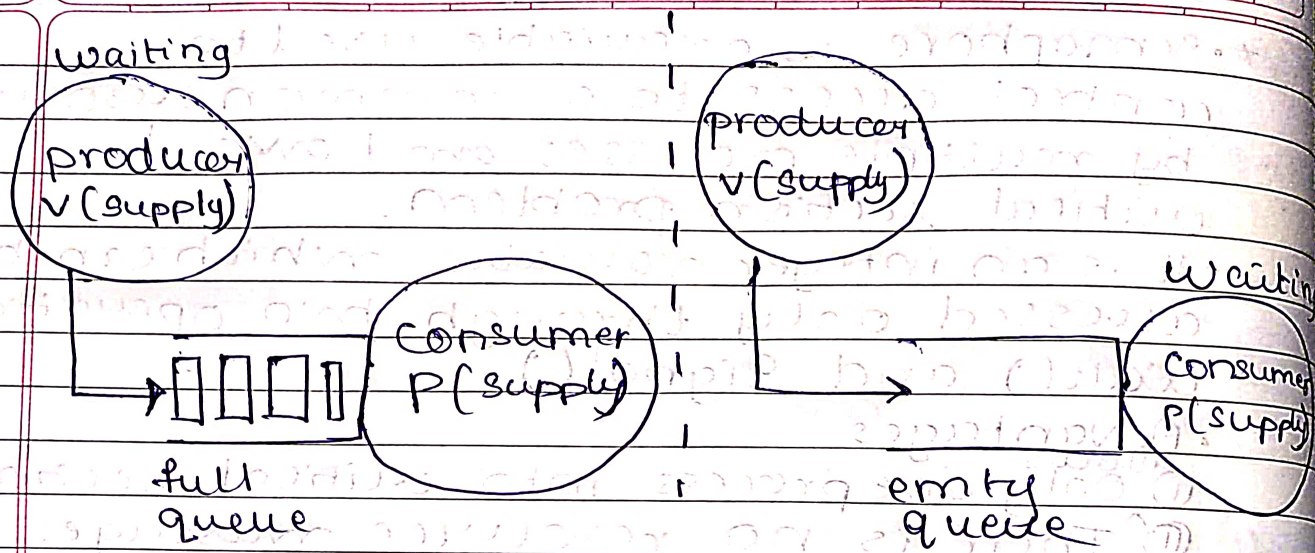 waiting
producer
v(supply)
consumer
p(supply)
full
queue
producer
v(supply)
waitin
consumer
p(supply)
emty
queue